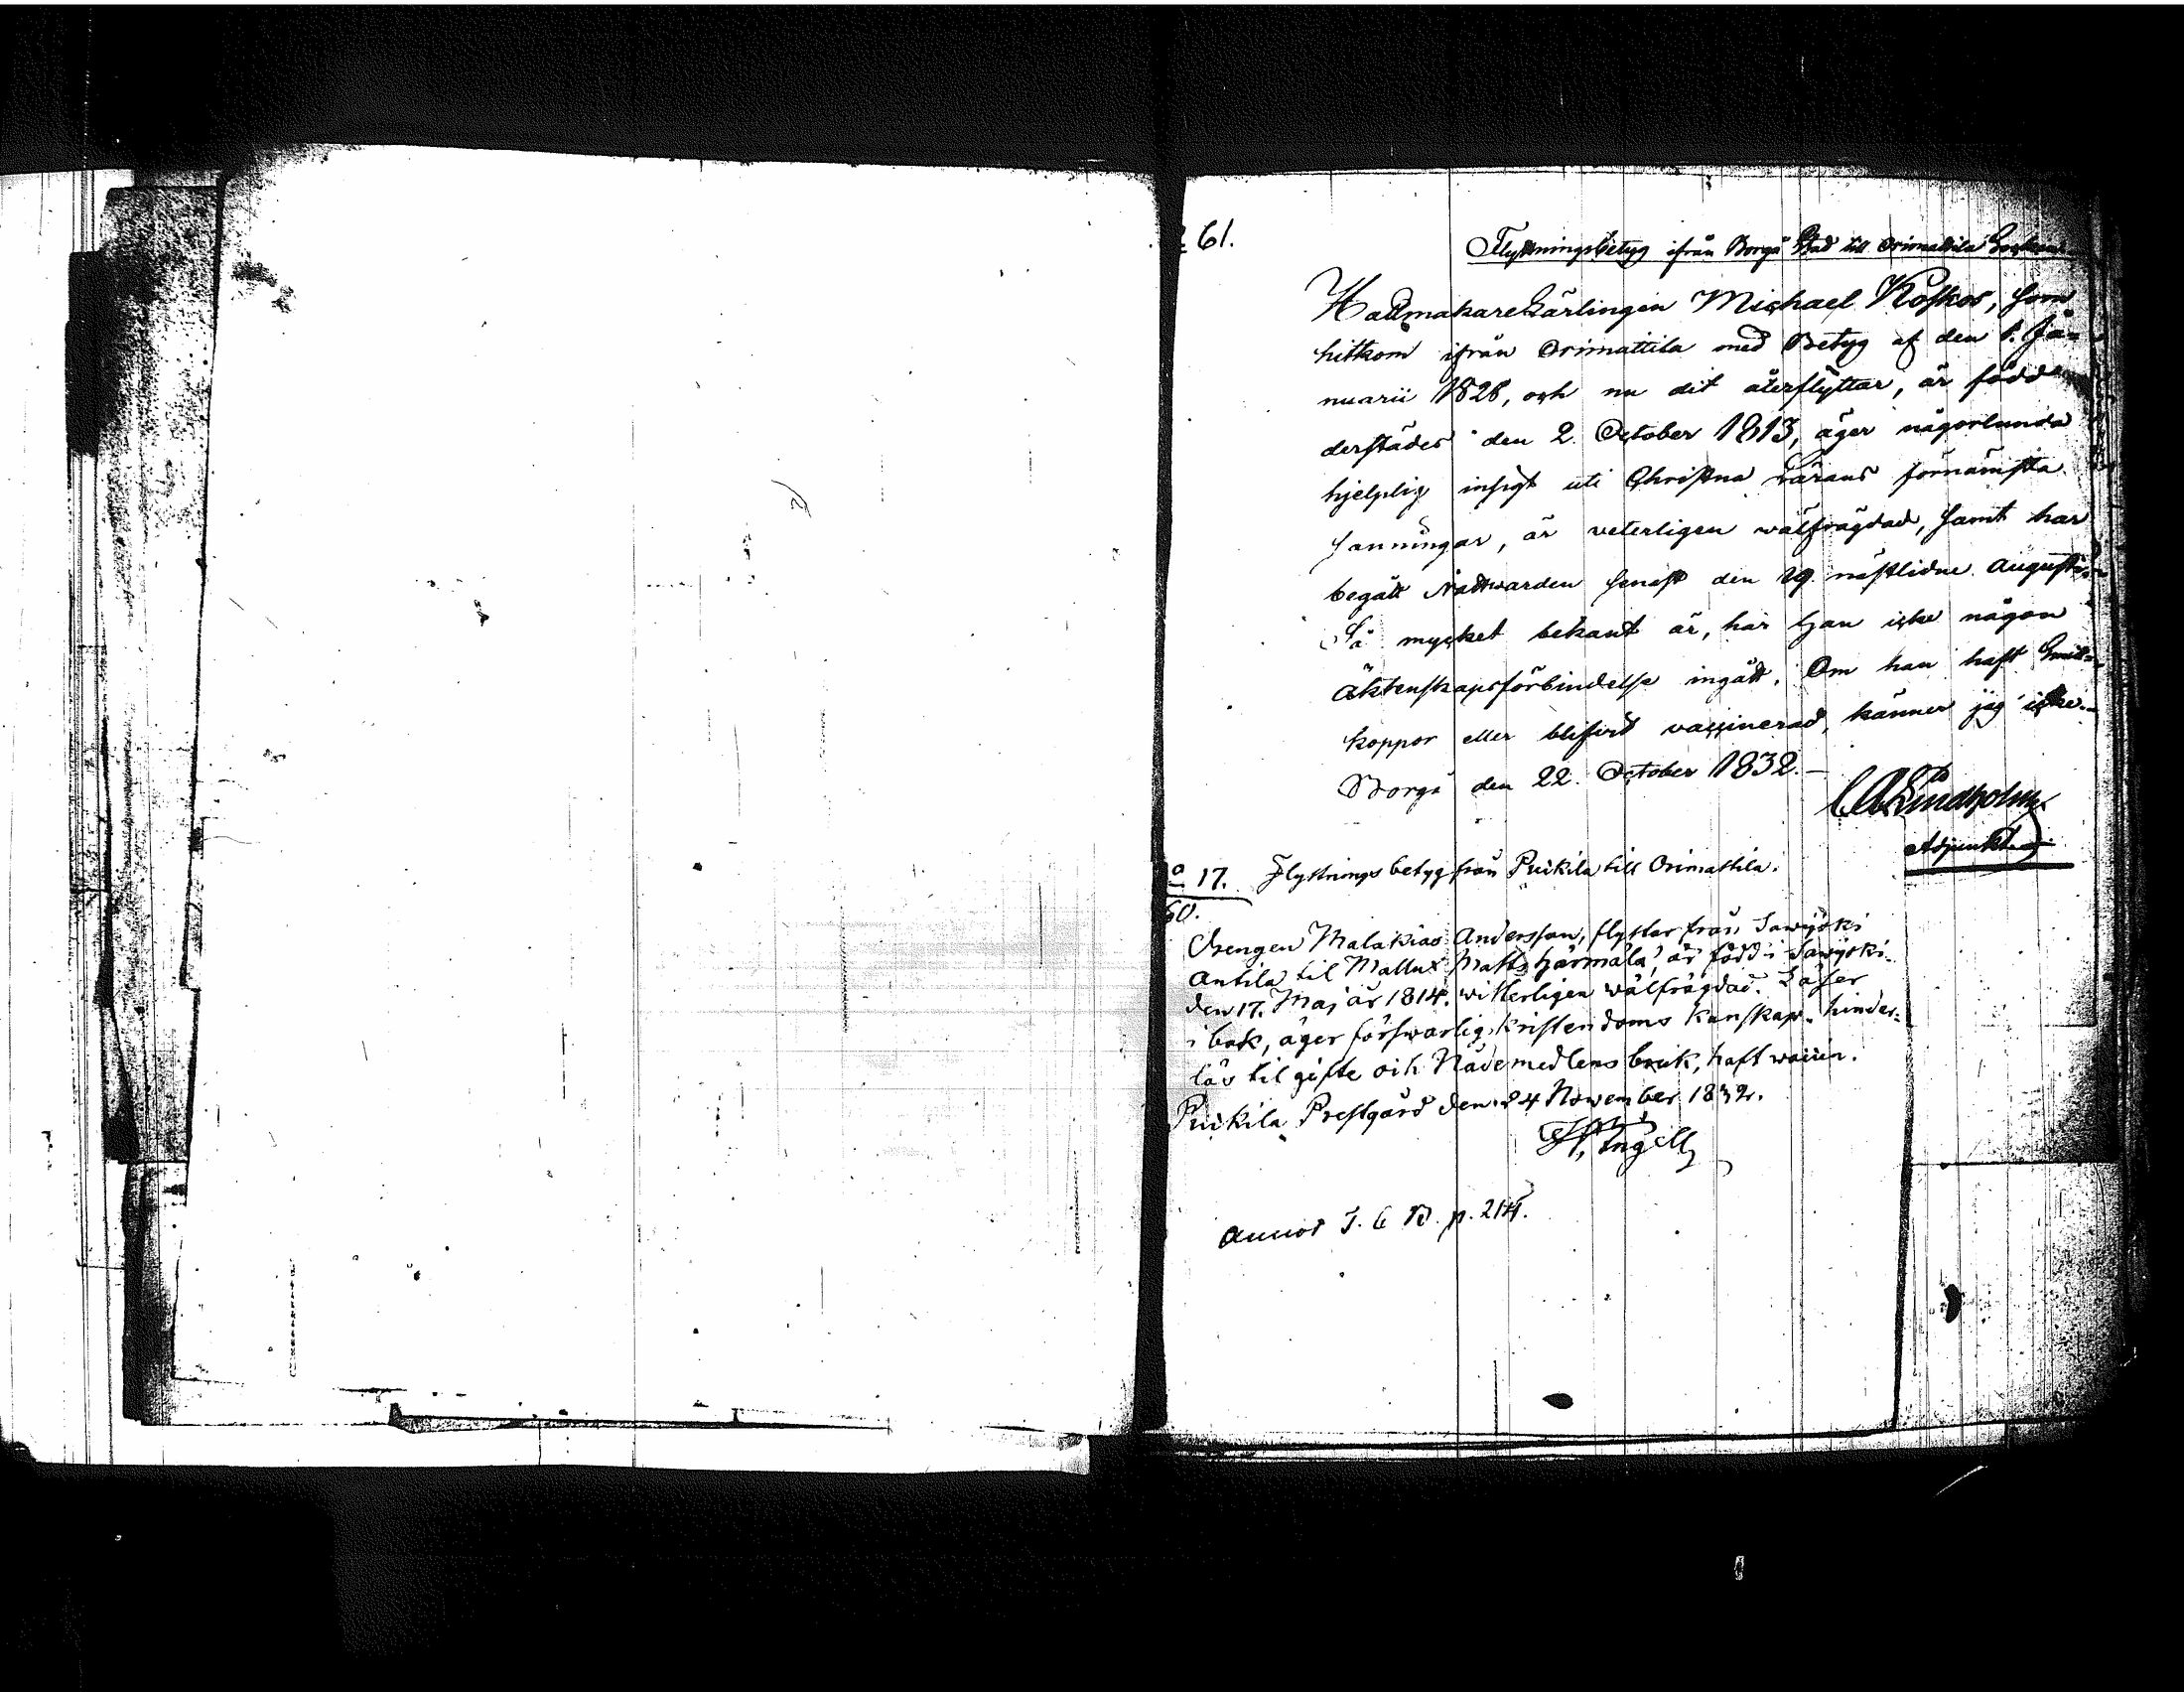 61.
Flyttningsbetyg ifrån Borgå Stad till Orimattila Socken
Hattmakare Lärlingen Michael Koskos, som
hitkom ifrån Orimattila med Betyg af den 1. Ja-
nuarii 1828, och nu dit återflyttar, är född
derstädes den 2. October 1813, äger någorlunda
hjelplig insigt uti Christna Lärans förnämsta
sanningar, är veterligen wälfrägdad, samt har
begått Nattwarden senast den 19. nästlidne Augusti.
Så mycket bekant är, har Han icke någon
Äktenskapsförbindelse ingått. Om han haft Smitt-
koppor eller blifvit vaccinerad, känner jag icke.
Borgå den 22. October 1832.
Lindholm
Adjunkt
o 17. Flyttnings betyg från Pukila till Orimattila.
60.
Drengen Malakias Andersson, flyttar från Sawijoki
Antila til Mallux Matts Härmälä, är född i Sawijoki
den 17. Maj år 1814. witterligen wälfrägdad. Läser
i bok, äger förswarlig kristendoms kunskap. hinder-
lös til gifte och Nådemedlens bruk, haft waccin.
Pukila Prestgård den 24 November 1832.
H. Ingell
Annot I. C. B. p. 214.